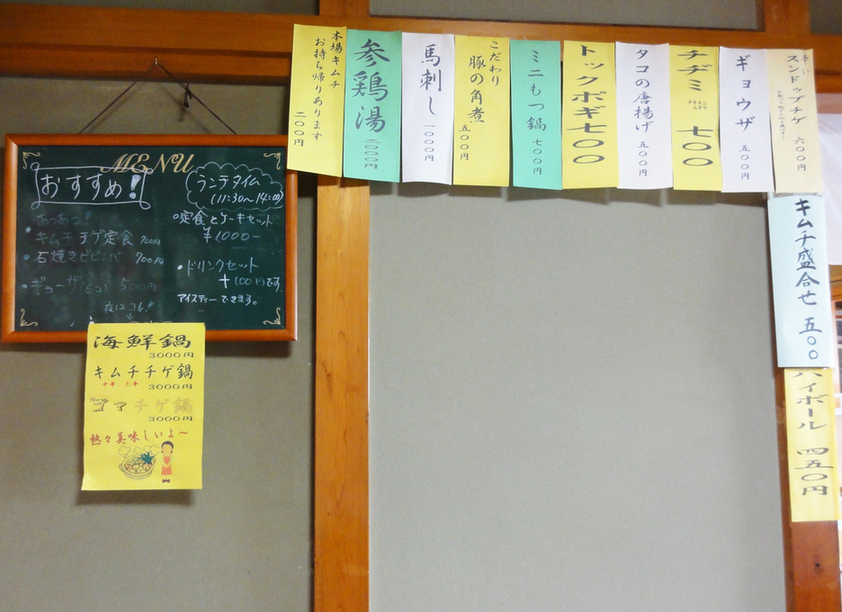 MENU
おすすめ!
キムチチゲ定食 900円
石焼きビビンバ 900円
ギョーザ(6コ) 500円
ランチタイム
(11:30~14:00)
定食とケーキセット
¥1000-
・ドリンクセット
+100円です。
アイスティーできます。
海鮮鍋
3000円
キムチチゲ鍋
3000円
ゴマチゲ鍋
3000円
悠々美味しいよ～
本場キムチ
お持ち帰りあります
二〇〇円
参鶏湯
二〇〇〇円
馬刺し
一〇〇〇円
こだわり
豚の角煮
五〇〇円
ミニもつ鍋
七〇〇円
トックポギ七〇〇
タコの唐揚げ
五〇〇円
チヂミ
七〇〇
ギョウザ
五〇〇円
スンドゥブチゲ
六〇〇円
キムチ盛合せ 五〇〇
ハイボール 四五〇円